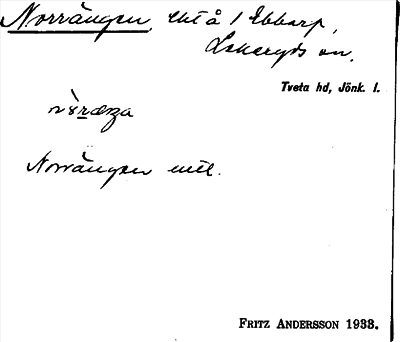 Norrängen, tht å 1 Ebbarp,
Lekeryds sn.
Tveta hd, Jönk. l.
Norrängen uttl.
FRITZ ANDERSSON 1933.